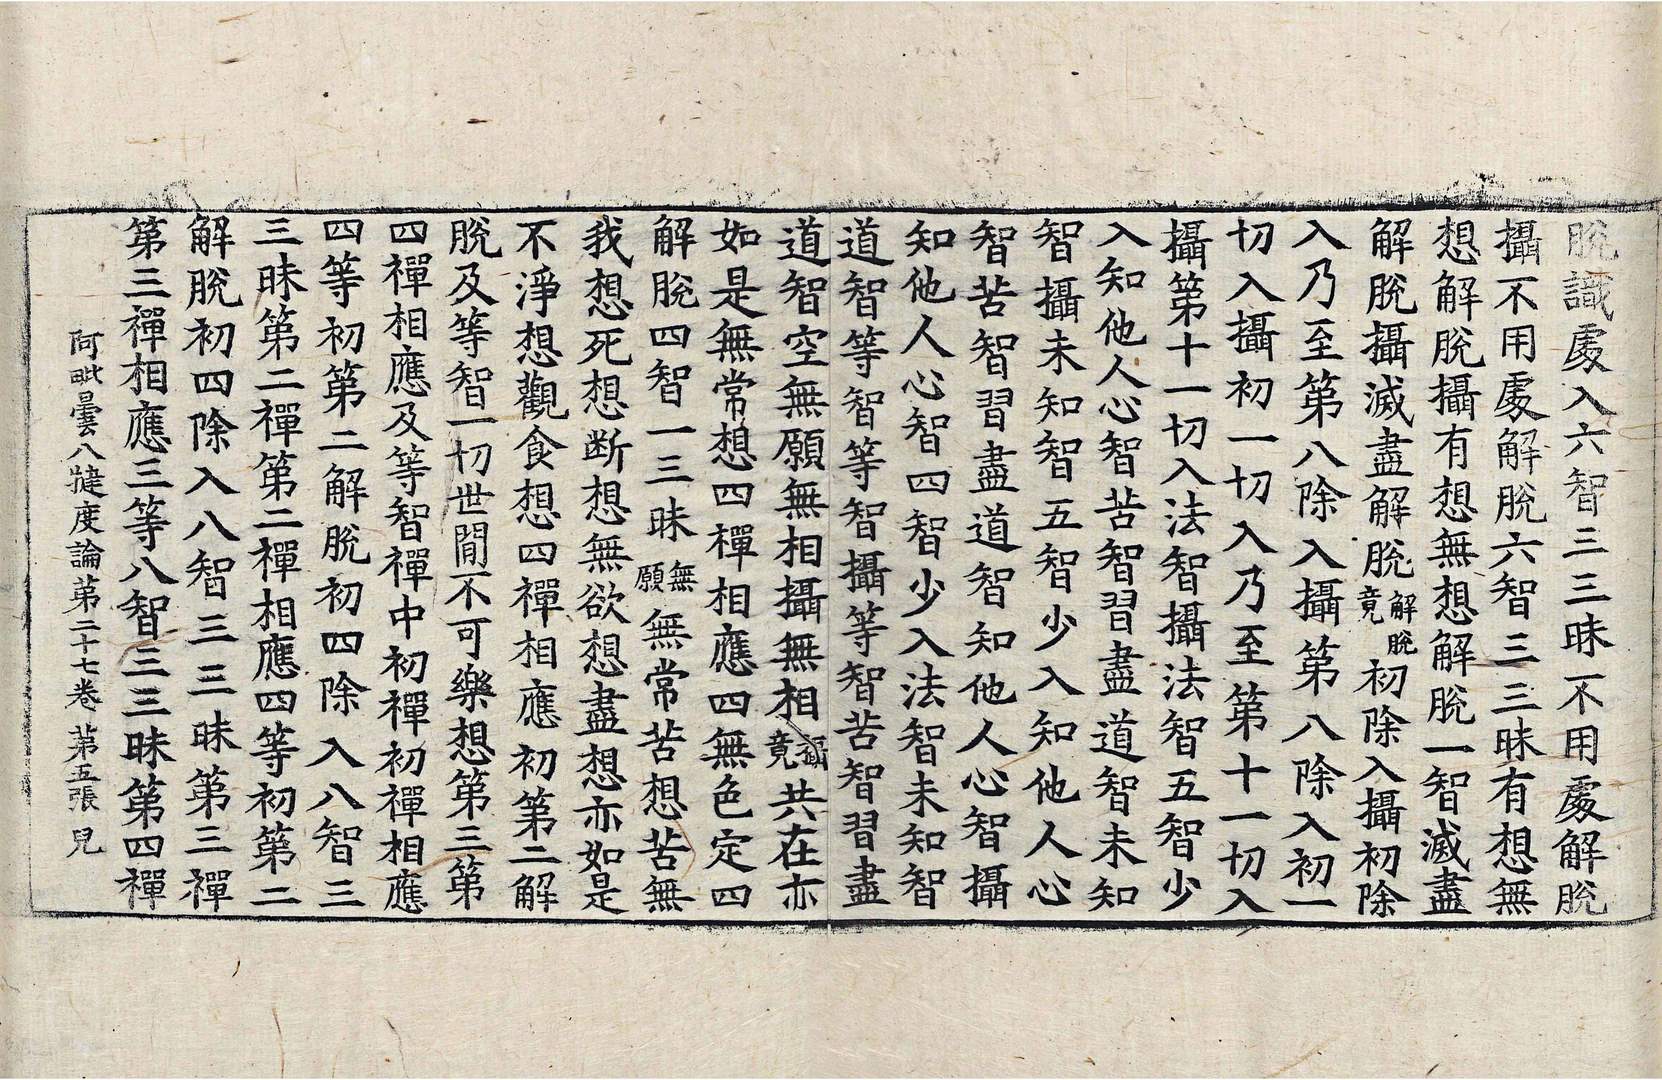 脫識處入六智三三昧不用處解脫
攝不用處解脫六智三三昧有想無
想解脫攝有想無想解脫一智滅盡
解脫攝滅盡解脫解脫竟初除入攝初除
入乃至第八除入攝第八除入初一
切入攝初一切入乃至第十一切入
攝第十一切入法智攝法智五智少
入知他人心智苦智習盡道智未知
智攝未知智五智少入知他人心
智苦智習盡道智知他人心智攝
知他人心智四智少入法智未知智
道智等智等智攝等智苦智習盡
道智空無願無相攝無相攝竟共在亦
如是無常想四禪相應四無色定四
解脫四智一三昧無願無常苦想苦無
我想死想断想無欲想盡想亦如是
不淨想觀食想四禪相應初第二解
脫及等智一切世間不可樂想第三第
四禪相應及等智禪中初禪初禪相應
四等初第二解脫初四除入八智三
三昧第二禪第二禪相應四等初第二
解脫初四除入八智三三昧第三禪
第三禪相應三等八智三三昧第四禪
阿毗曇八犍度論第二十七卷 第五張 兒